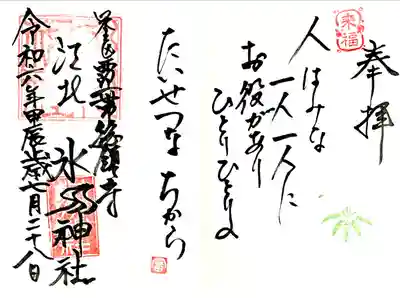 奉拝
来福
人はみな
一人一人に
お役があり
ひとりひとりの
たいせつなちから
江北
氷川神社
令和六年甲辰歳七月二十八日